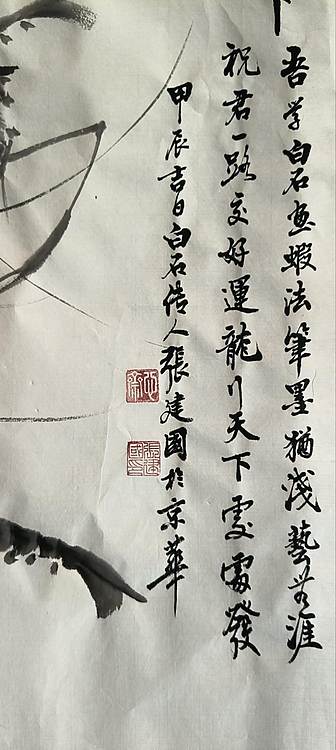 吾学白石画蝦法筆墨猶淺藝无涯
祝君一路交好運龍行天下處處發
甲辰吉日白石传人張建國於京華